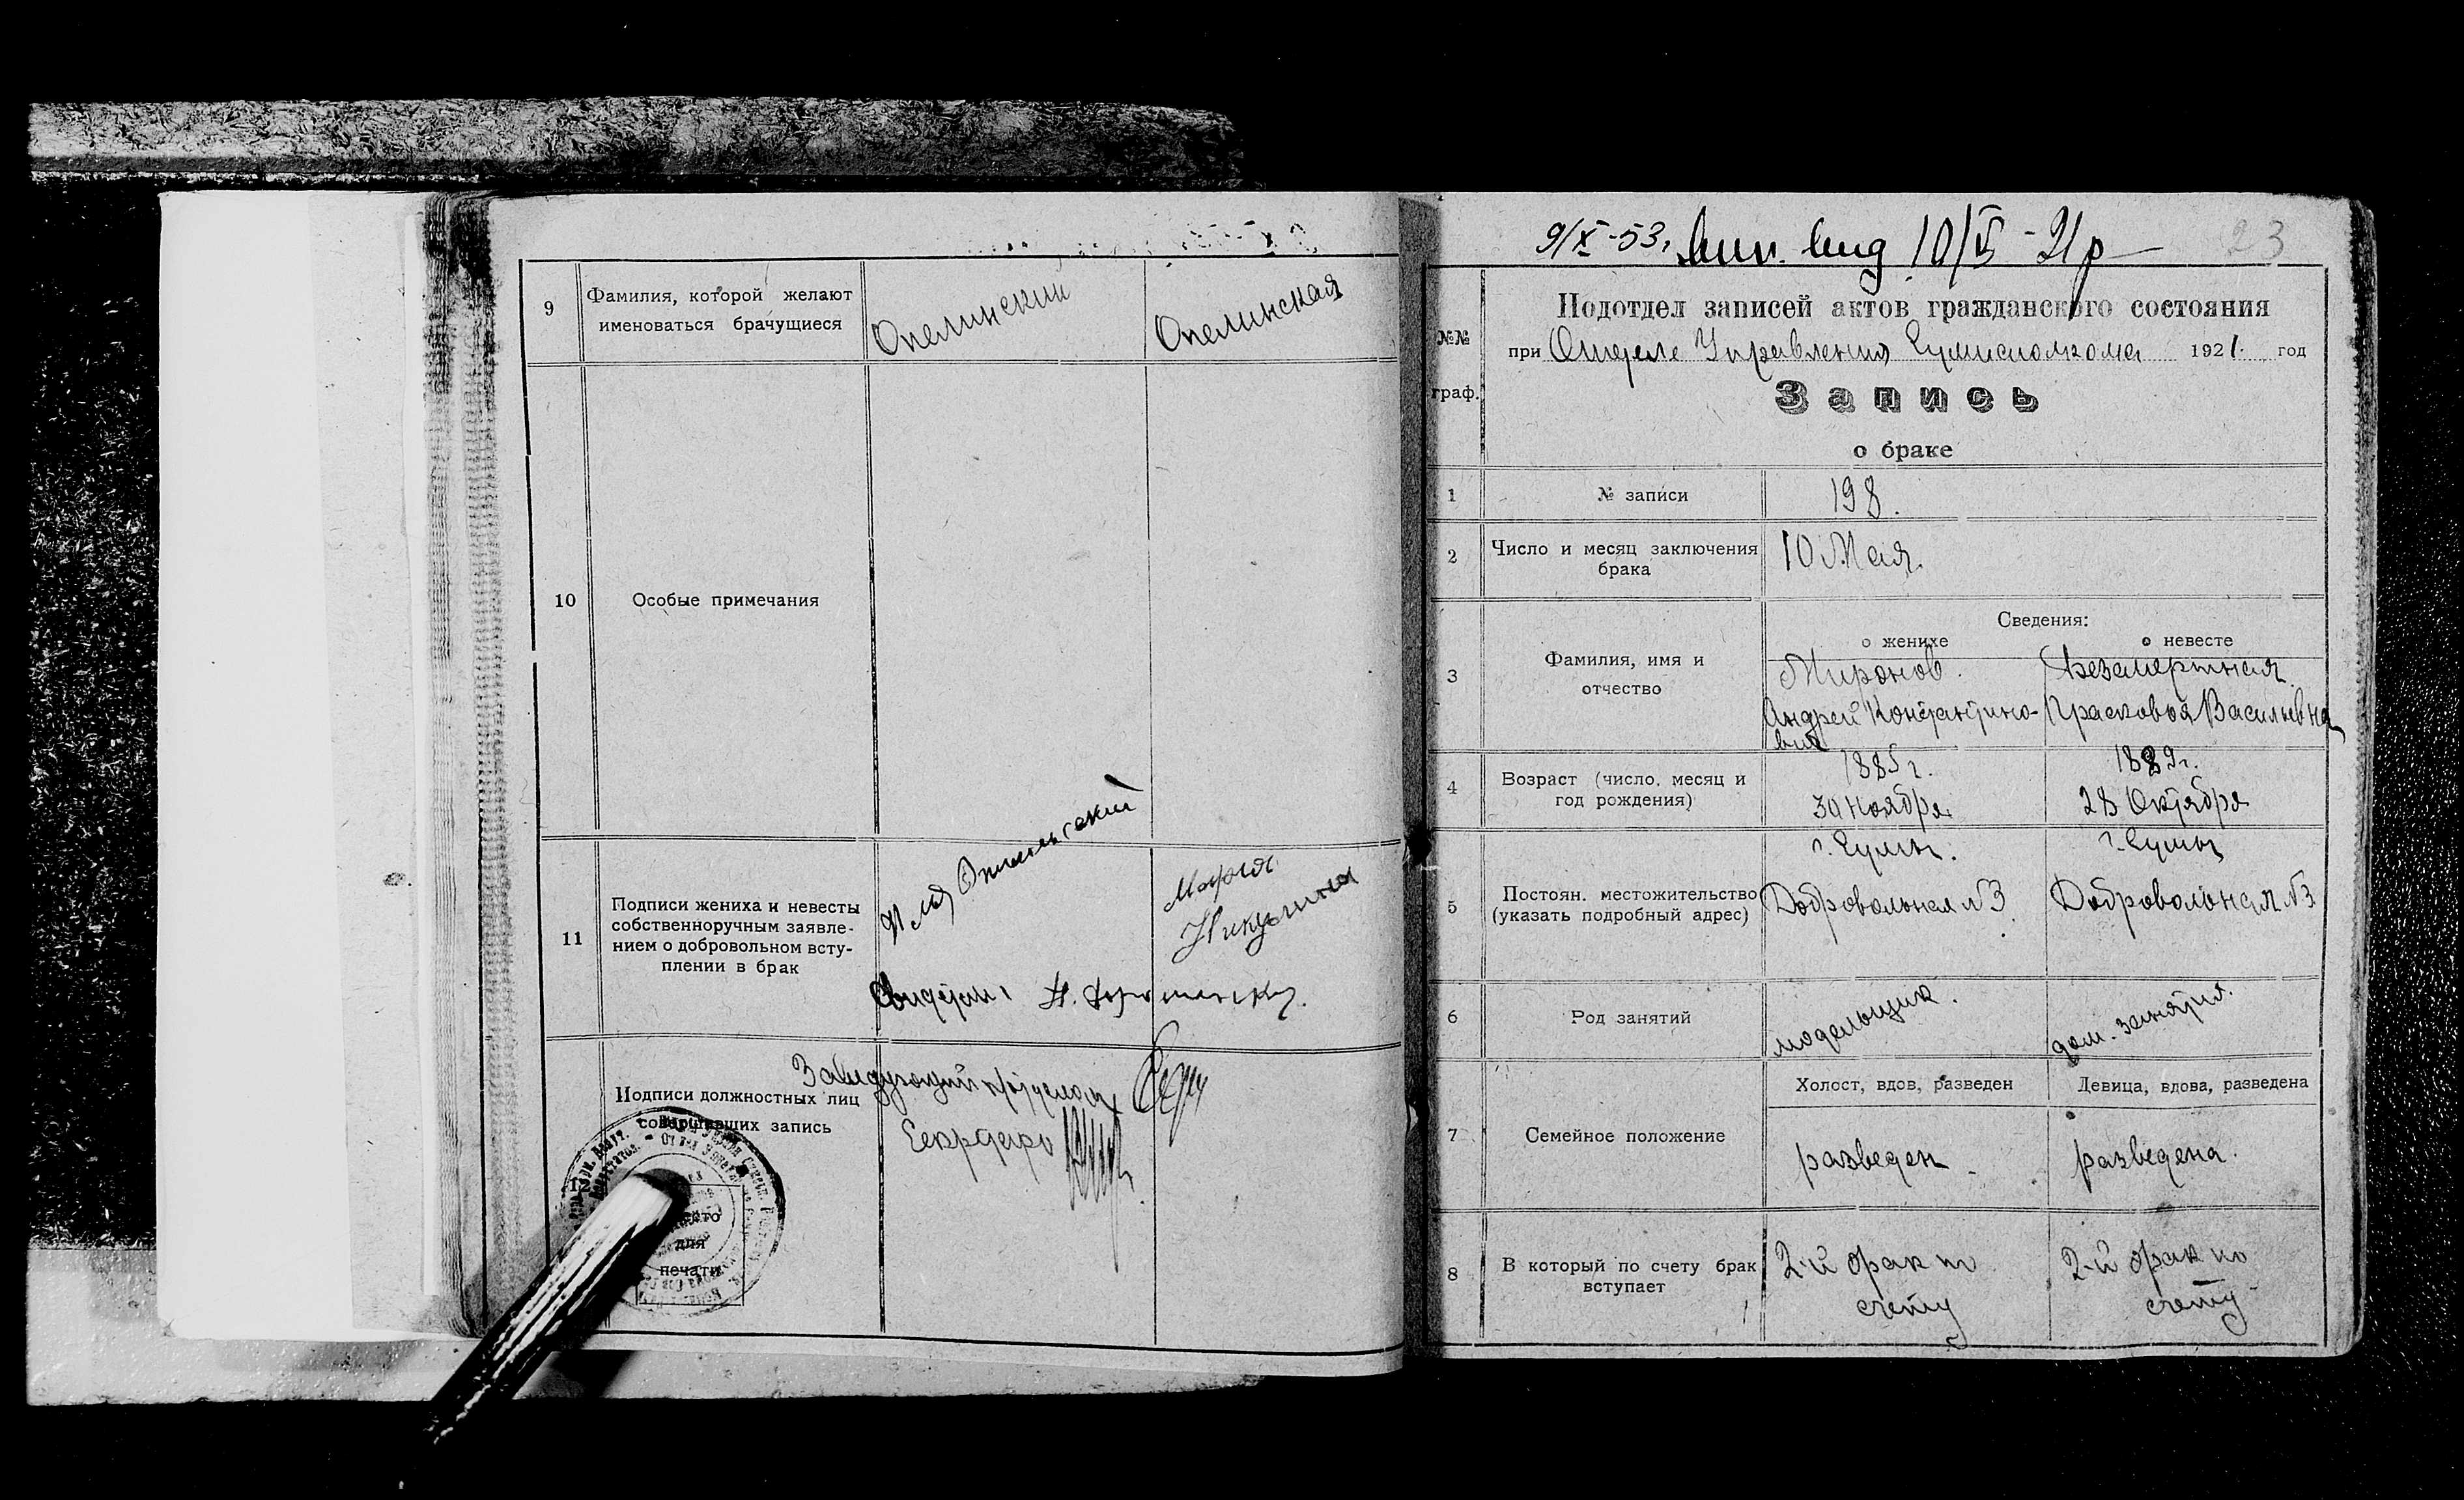 9
Фамилия, которой желают
именоваться брачущиеся
Опелинский
Опелинская
10
Особые примечания
11
Подписи жениха и невесты
собственноручным заявле-
нием о добровольном всту-
плении в брак
Мария
Никулина
Заведующий
Подписи должностных лиц
совершивших запись
место
для
печати
9/X-53.
10/V-21р
23
№№
граф.
Подотдел записей актов гражданского состояния
при Отделе Управления Сумисполкома 1921. год
Запись
о браке
1
№ записи
198.
2
Число и месяц заключения
брака
10 Мая.
Сведения:
о женихе
о невесте
3
Фамилия, имя и
отчество
Миронов.
Андрей Константино-
вич
Безсмертная.
Прасковья Васильевна
4
Возраст (число, месяц и
год рождения)
1885 г.
30 Ноября
1889 г.
28 Октября
5
Постоян. местожительство
(указать подробный адрес)
г. Сумы.
Добровольная №3.
г. Сумы
Добровольная №3
6
Род занятий
модельщик.
дом. занятия.
7
Семейное положение
Холост, вдов, разведен
Девица, вдова, разведена
разведен.
разведена.
8
В который по счету брак
вступает
2-й брак по
счету
2-й брак по
счету